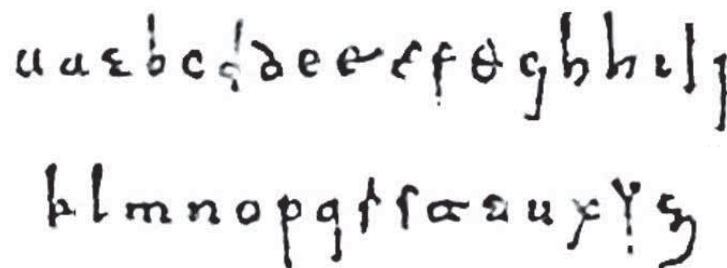 a a ε b c d ∂ e e ɛ f G g h h i I j
k l m n o p q r ſ t t u x y z